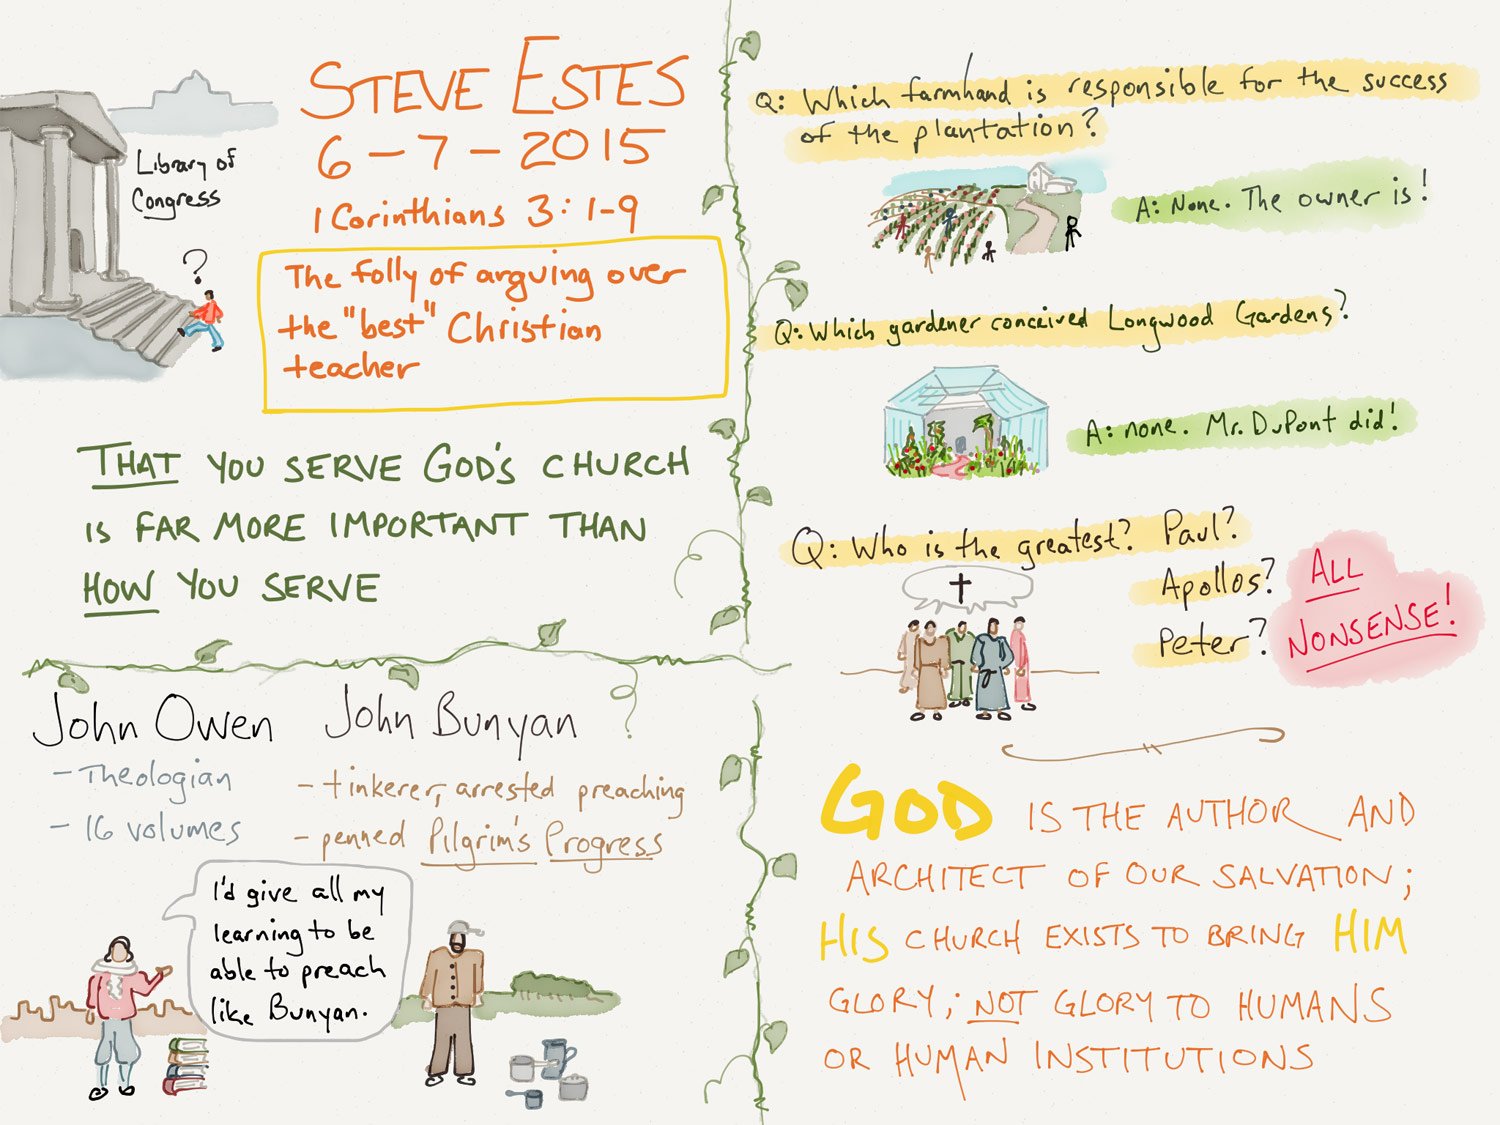 Library of
Congress
?
STEVE ESTES
6-7-2015
1 Corinthians 3:1-9
The folly of arguing over
the "best" Christian
teacher
THAT YOU SERVE GOD'S CHURCH
IS FAR MORE IMPORTANT THAN
HOW YOU SERVE
John Owen
- Theologian
- 16 volumes
John Bunyan
- tinkerer, arrested preaching
- penned Pilgrim's Progress
I'd give all my
learning to be
able to preach
like Bunyan.
Q: Which farmhand is responsible for the success
of the plantation?
A: None. The owner is!
Q: Which gardener conceived Longwood Gardens?
A: none. Mr. DuPont did!
Q: Who is the greatest? Paul?
Apollos?
Peter?
ALL
NONSENSE!
GOD IS THE AUTHOR AND
ARCHITECT OF OUR SALVATION;
HIS CHURCH EXISTS TO BRING HIM
GLORY; NOT GLORY TO HUMANS
OR HUMAN INSTITUTIONS